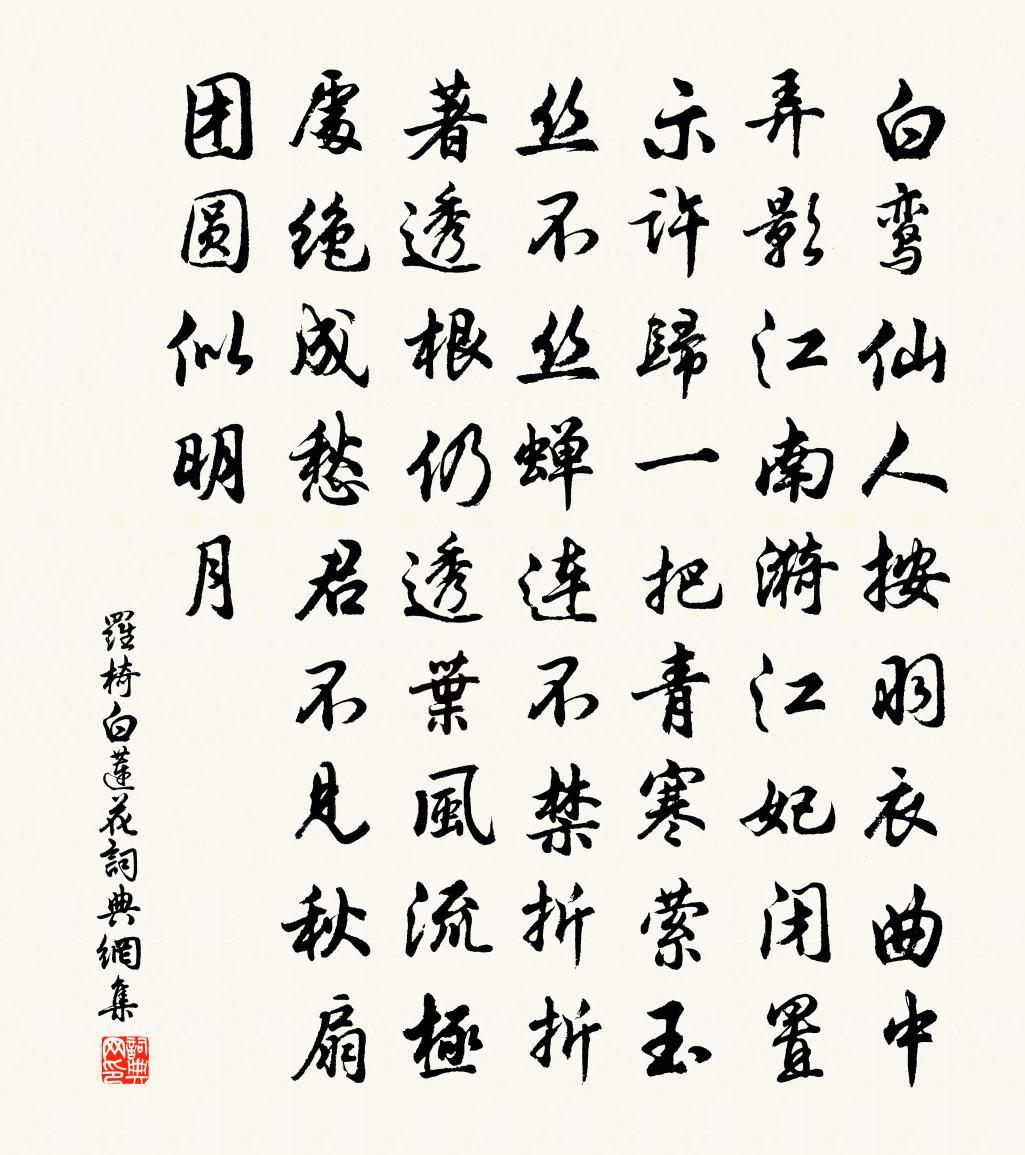 白鸾仙人按羽衣曲中
弄影江南漪江妃闭置
示许歸一把青寒萦玉
丝不丝蝉连不禁折折
著透根仍透葉風流極
處绝成愁君不见秋扇
团圆似明月
羅椅白蓮花詞典網集
詞典网印